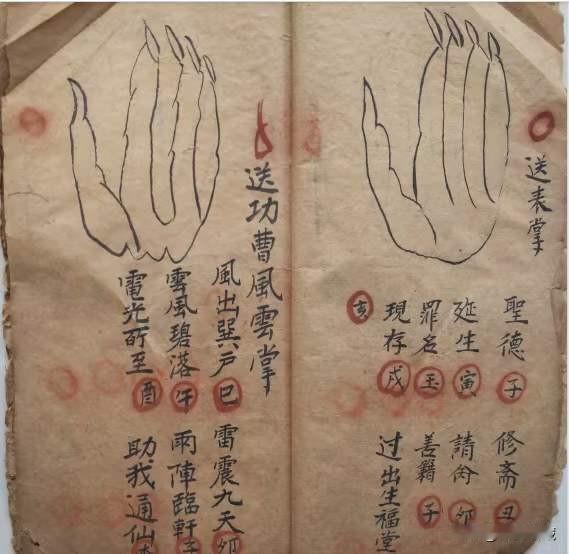 送表掌
聖德子 修斋丑
延生寅 請 卯
罪名玉 善籍子
現存戌 过出生福堂
亥
送功曹風雲掌
風出巽户巳 雷震九天卯
雲風碧落午 雨陣臨軒子
電光所至酉 助我通仙